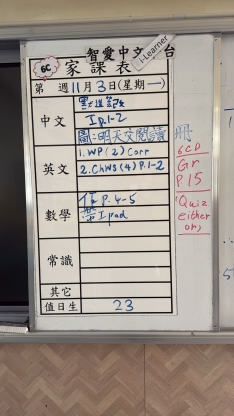 智愛中文平台
i-Learner
6C 家課表
第 週 11月3日(星期一)
中文
I p.1-2
圖:明天交閱讀冊
英文
1. WP (2) Corr
2. Ch WS (4) P.1-2
數學
P.4-5
Ipad
常識
其它
值日生 23
GCD
Gr
P.15
(Quiz
either
or)